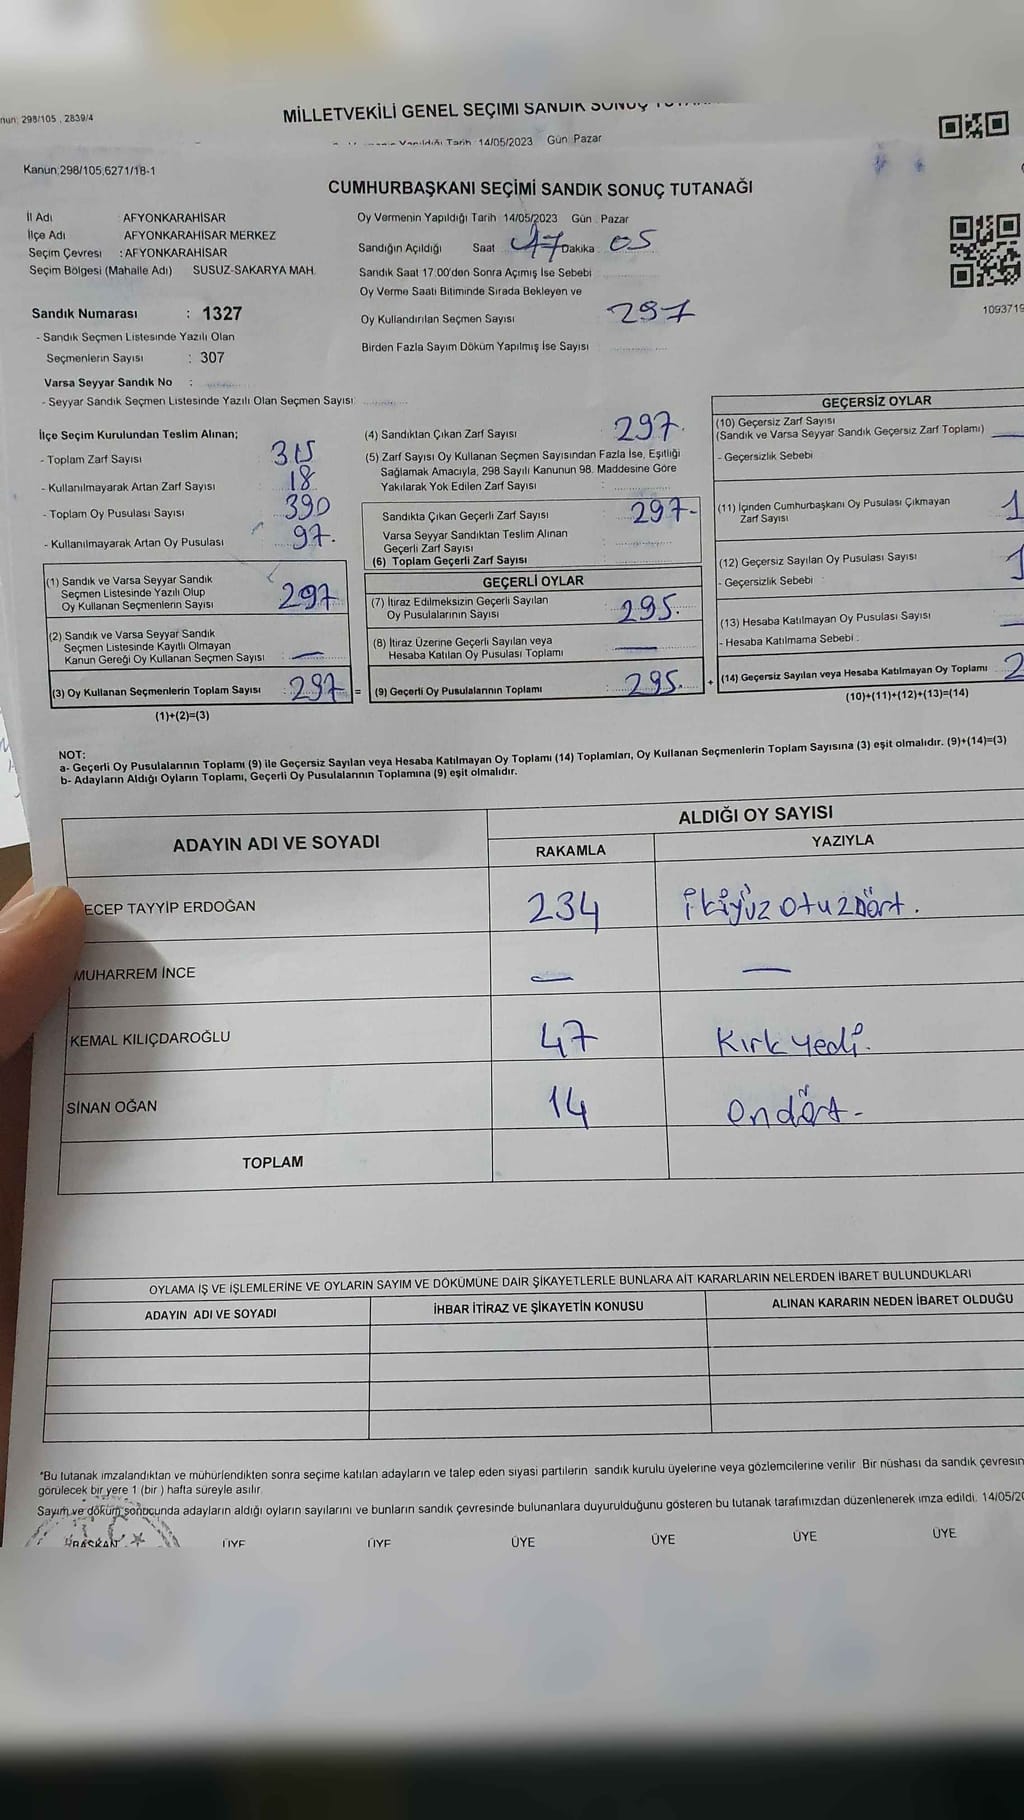 nun: 298/105 , 2839/4
MİLLETVEKİLİ GENEL SEÇİMİ SANDIK SONUÇ
Tarih 14/05/2023 Gün: Pazar
Kanun:298/105,6271/18-1
CUMHURBAŞKANI SEÇİMİ SANDIK SONUÇ TUTANAĞI
İl Adı : AFYONKARAHİSAR
İlçe Adı : AFYONKARAHİSAR MERKEZ
Seçim Çevresi : AFYONKARAHİSAR
Seçim Bölgesi (Mahalle Adı) SUSUZ-SAKARYA MAH.
Oy Vermenin Yapıldığı Tarih 14/05/2023 Gün : Pazar
Sandığın Açıldığı Saat 17 Dakika : 05
Sandık Saat 17:00'den Sonra Açımış İse Sebebi
Oy Verme Saati Bitiminde Sırada Bekleyen ve
Oy Kullandırılan Seçmen Sayısı 297
Birden Fazla Sayım Döküm Yapılmış İse Sayısı
1093719
Sandık Numarası : 1327
- Sandık Seçmen Listesinde Yazılı Olan
Seçmenlerin Sayısı : 307
Varsa Seyyar Sandık No :
- Seyyar Sandık Seçmen Listesinde Yazılı Olan Seçmen Sayısı:
İlçe Seçim Kurulundan Teslim Alınan;
- Toplam Zarf Sayısı 315
- Kullanılmayarak Artan Zarf Sayısı 18
- Toplam Oy Pusulası Sayısı 390
- Kullanılmayarak Artan Oy Pusulası 97.
(1) Sandık ve Varsa Seyyar Sandık
Seçmen Listesinde Yazılı Olup
Oy Kullanan Seçmenlerin Sayısı 297
(2) Sandık ve Varsa Seyyar Sandık
Seçmen Listesinde Kayıtlı Olmayan
Kanun Gereği Oy Kullanan Seçmen Sayısı : —
(3) Oy Kullanan Seçmenlerin Toplam Sayısı : 297 =
(1)+(2)=(3)
(4) Sandıktan Çıkan Zarf Sayısı 297.
(5) Zarf Sayısı Oy Kullanan Seçmen Sayısından Fazla İse, Eşitliği
Sağlamak Amacıyla, 298 Sayılı Kanunun 98. Maddesine Göre
Yakılarak Yok Edilen Zarf Sayısı :
Sandıkta Çıkan Geçerli Zarf Sayısı 297-
Varsa Seyyar Sandıktan Teslim Alınan
Geçerli Zarf Sayısı
(6) Toplam Geçerli Zarf Sayısı
GEÇERLİ OYLAR
(7) İtiraz Edilmeksizin Geçerli Sayılan
Oy Pusulalarının Sayısı 295.
(8) İtiraz Üzerine Geçerli Sayılan veya
Hesaba Katılan Oy Pusulası Toplamı —
(9) Geçerli Oy Pusulalarının Toplamı : 295. +
GEÇERSİZ OYLAR
(10) Geçersiz Zarf Sayısı
(Sandık ve Varsa Seyyar Sandık Geçersiz Zarf Toplamı) —
- Geçersizlik Sebebi :
(11) İçinden Cumhurbaşkanı Oy Pusulası Çıkmayan
Zarf Sayısı 1
(12) Geçersiz Sayılan Oy Pusulası Sayısı 1
- Geçersizlik Sebebi :
(13) Hesaba Katılmayan Oy Pusulası Sayısı —
- Hesaba Katılmama Sebebi :
(14) Geçersiz Sayılan veya Hesaba Katılmayan Oy Toplamı 2
(10)+(11)+(12)+(13)=(14)
NOT:
a- Geçerli Oy Pusulalarının Toplamı (9) ile Geçersiz Sayılan veya Hesaba Katılmayan Oy Toplamı (14) Toplamları, Oy Kullanan Seçmenlerin Toplam Sayısına (3) eşit olmalıdır. (9)+(14)=(3)
b- Adayların Aldığı Oyların Toplamı, Geçerli Oy Pusulalarının Toplamına (9) eşit olmalıdır.
ADAYIN ADI VE SOYADI
ALDIĞI OY SAYISI
RAKAMLA YAZIYLA
ECEP TAYYİP ERDOĞAN 234 ikiyüz otuzdört.
MUHARREM İNCE — —
KEMAL KILIÇDAROĞLU 47 Kırk yedi.
SİNAN OĞAN 14 ondört-
TOPLAM
OYLAMA İŞ VE İŞLEMLERİNE VE OYLARIN SAYIM VE DÖKÜMÜNE DAİR ŞİKAYETLERLE BUNLARA AİT KARARLARIN NELERDEN İBARET BULUNDUKLARI
ADAYIN ADI VE SOYADI İHBAR İTİRAZ VE ŞİKAYETİN KONUSU ALINAN KARARIN NEDEN İBARET OLDUĞU
*Bu tutanak imzalandıktan ve mühürlendikten sonra seçime katılan adayların ve talep eden siyasi partilerin sandık kurulu üyelerine veya gözlemcilerine verilir. Bir nüshası da sandık çevresin
görülecek bir yere 1 (bir ) hafta süreyle asılır.
Sayım ve döküm sonucunda adayların aldığı oyların sayılarını ve bunların sandık çevresinde bulunanlara duyurulduğunu gösteren bu tutanak tarafımızdan düzenlenerek imza edildi. 14/05/20
BAŞKAN ÜYE ÜYE ÜYE ÜYE ÜYE ÜYE